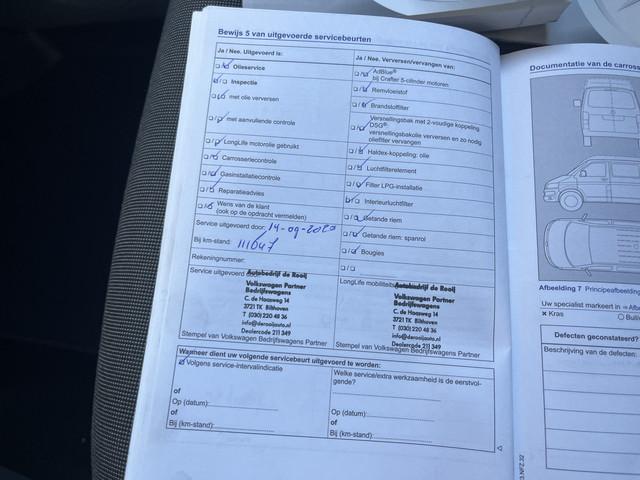 Bewijs 5 van uitgevoerde servicebeurten
Ja / Nee. Uitgevoerd is:
Olieservice
Inspectie
met olie verversen
met aanvullende controle
LongLife motorolie gebruikt
Carrosseriecontrole
Gasinstallatiecontrole
Reparatieadvies
Wens van de klant
(ook op de opdracht vermelden)
Service uitgevoerd door: 14-09-2020
Bij km-stand: 111047
Rekeningnummer:
Service uitgevoerd
Autobedrijf de Rooij
Volkswagen Partner
Bedrijfswagens
C. de Haasweg 14
3721 TK Bilthoven
T (030) 220 48 36
info@derooijauto.nl
Dealercode 211 349
Stempel van Volkswagen Bedrijfswagens Partner
Ja / Nee. Verversen/vervangen van:
AdBlue®
bij Crafter 5-cilinder motoren
Remvloeistof
Brandstoffilter
Versnellingsbak met 2-voudige koppeling
DSG®:
versnellingsbakolie verversen en zo nodig
oliefilter vervangen
Haldex-koppeling: olie
Luchtfilterelement
Filter LPG-installatie
Interieurluchtfilter
Getande riem
Getande riem: spanrol
Bougies
LongLife mobiliteits
Autobedrijf de Rooij
Volkswagen Partner
Bedrijfswagens
C. de Haasweg 14
3721 TK Bilthoven
T (030) 220 48 36
info@derooijauto.nl
Dealercode 211 349
Stempel van Volkswagen Bedrijfswagens Partner
Wanneer dient uw volgende servicebeurt uitgevoerd te worden:
Volgens service-intervalindicatie
of
Op (datum):
of
Bij (km-stand):
Welke service/extra werkzaamheid is de eerstvol-
gende?
Op (datum):
of
Bij (km-stand):
Documentatie van de carross
Afbeelding 7 Principeafbeelding
Uw specialist markeert in
Kras
Defecten geconstateerd?
Beschrijving van de defecten: